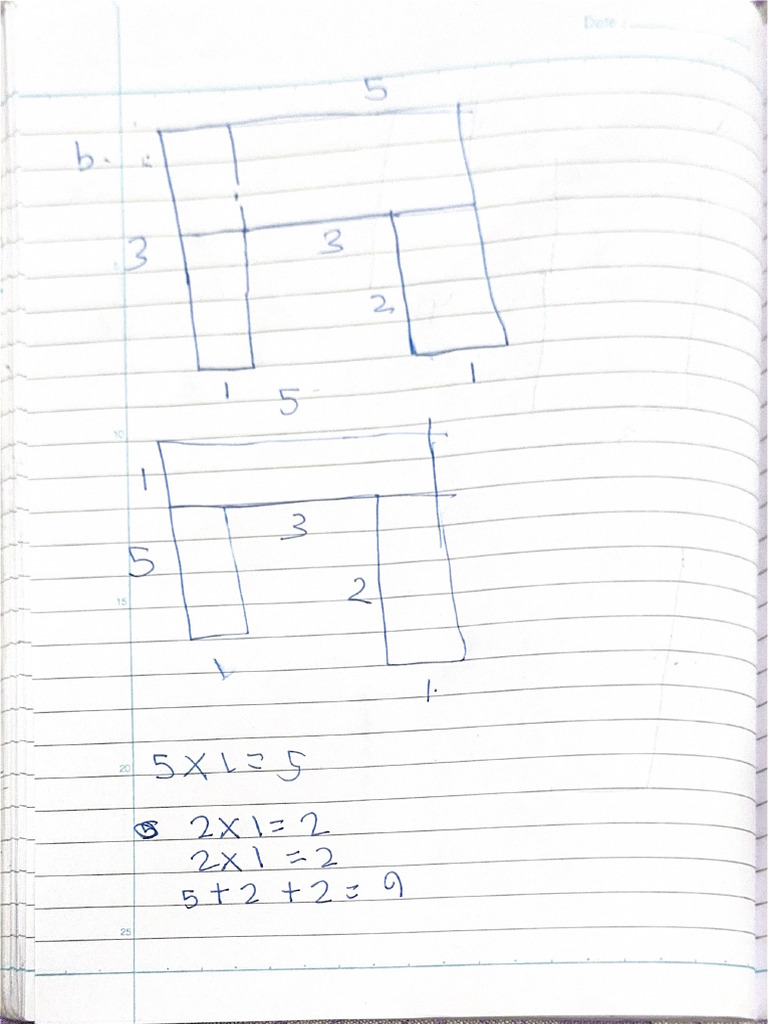 Date :
5
b.
3
3
2
1
1
5
10
1
3
5
2
15
1
1.
20
5 X 1 = 5
2 X 1 = 2
2 X 1 = 2
5 + 2 + 2 = 9
25